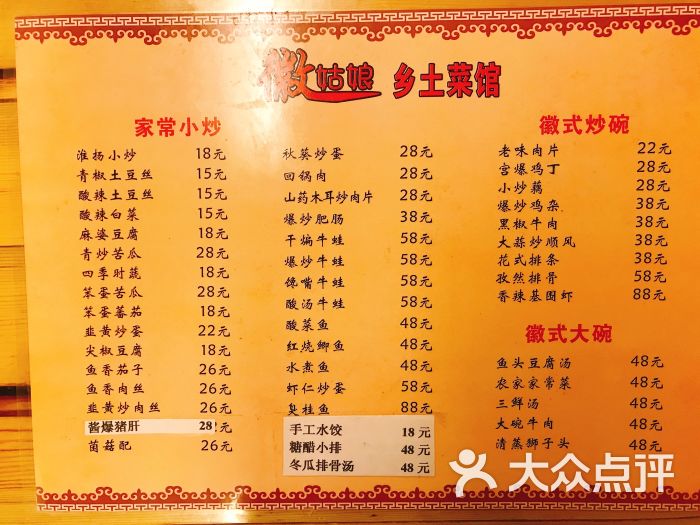 徽姑娘 乡土菜馆
家常小炒
淮扬小炒 18元
青椒土豆丝 15元
酸辣土豆丝 15元
酸辣白菜 15元
麻婆豆腐 18元
青炒苦瓜 28元
四季时蔬 18元
笨蛋苦瓜 28元
笨蛋蕃茄 18元
韭黄炒蛋 22元
尖椒豆腐 18元
鱼香茄子 26元
鱼香肉丝 26元
韭黄炒肉丝 26元
酱爆猪肝 28元
菌菇配 26元
秋葵炒蛋 28元
回锅肉 28元
山药木耳炒肉片 28元
爆炒肥肠 38元
干煸牛蛙 58元
爆炒牛蛙 58元
馋嘴牛蛙 58元
酸汤牛蛙 58元
酸菜鱼 48元
红烧鲫鱼 48元
水煮鱼 48元
虾仁炒蛋 58元
臭桂鱼 88元
手工水饺 18元
糖醋小排 48元
冬瓜排骨汤 48元
徽式炒碗
老味肉片 22元
宫爆鸡丁 28元
小炒藕 28元
爆炒鸡杂 38元
黑椒牛肉 38元
大蒜炒顺风 38元
花式排条 38元
孜然排骨 58元
香辣基围虾 88元
徽式大碗
鱼头豆腐汤 48元
农家家常菜 48元
三鲜汤 48元
大碗牛肉 48元
清蒸狮子头 48元
大众点评